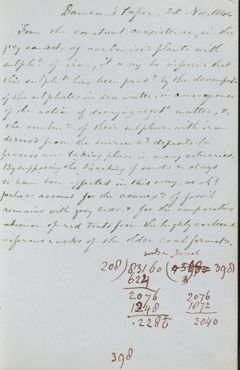 Dawson's Paper. 28 Nov. 1846
From the constant coexistence, in the
grey sandst. of carbonised plants with
sulpht. of iron, it may be inferred that
this sulpht. has been prodd. by the decompn.
of the sulphates in sea water, in consequence
of the action of decaying veget. matter, &
the combinn. of their sulphur with iron
derived from the surround. deposits (a
process now taking place in many estuaries.
By supposing the bleaching of sands & clays
to have been effected in this way, we shd.
perhaps account for the connexn. of fossil
remains with grey beds, & for the comparative
absence of red tints from the highly carbona
ceous rocks of the older coal formatn.
words in Journal
208) 83160 ( 398
624
2076 2076
1248 1872
2280 2040
398